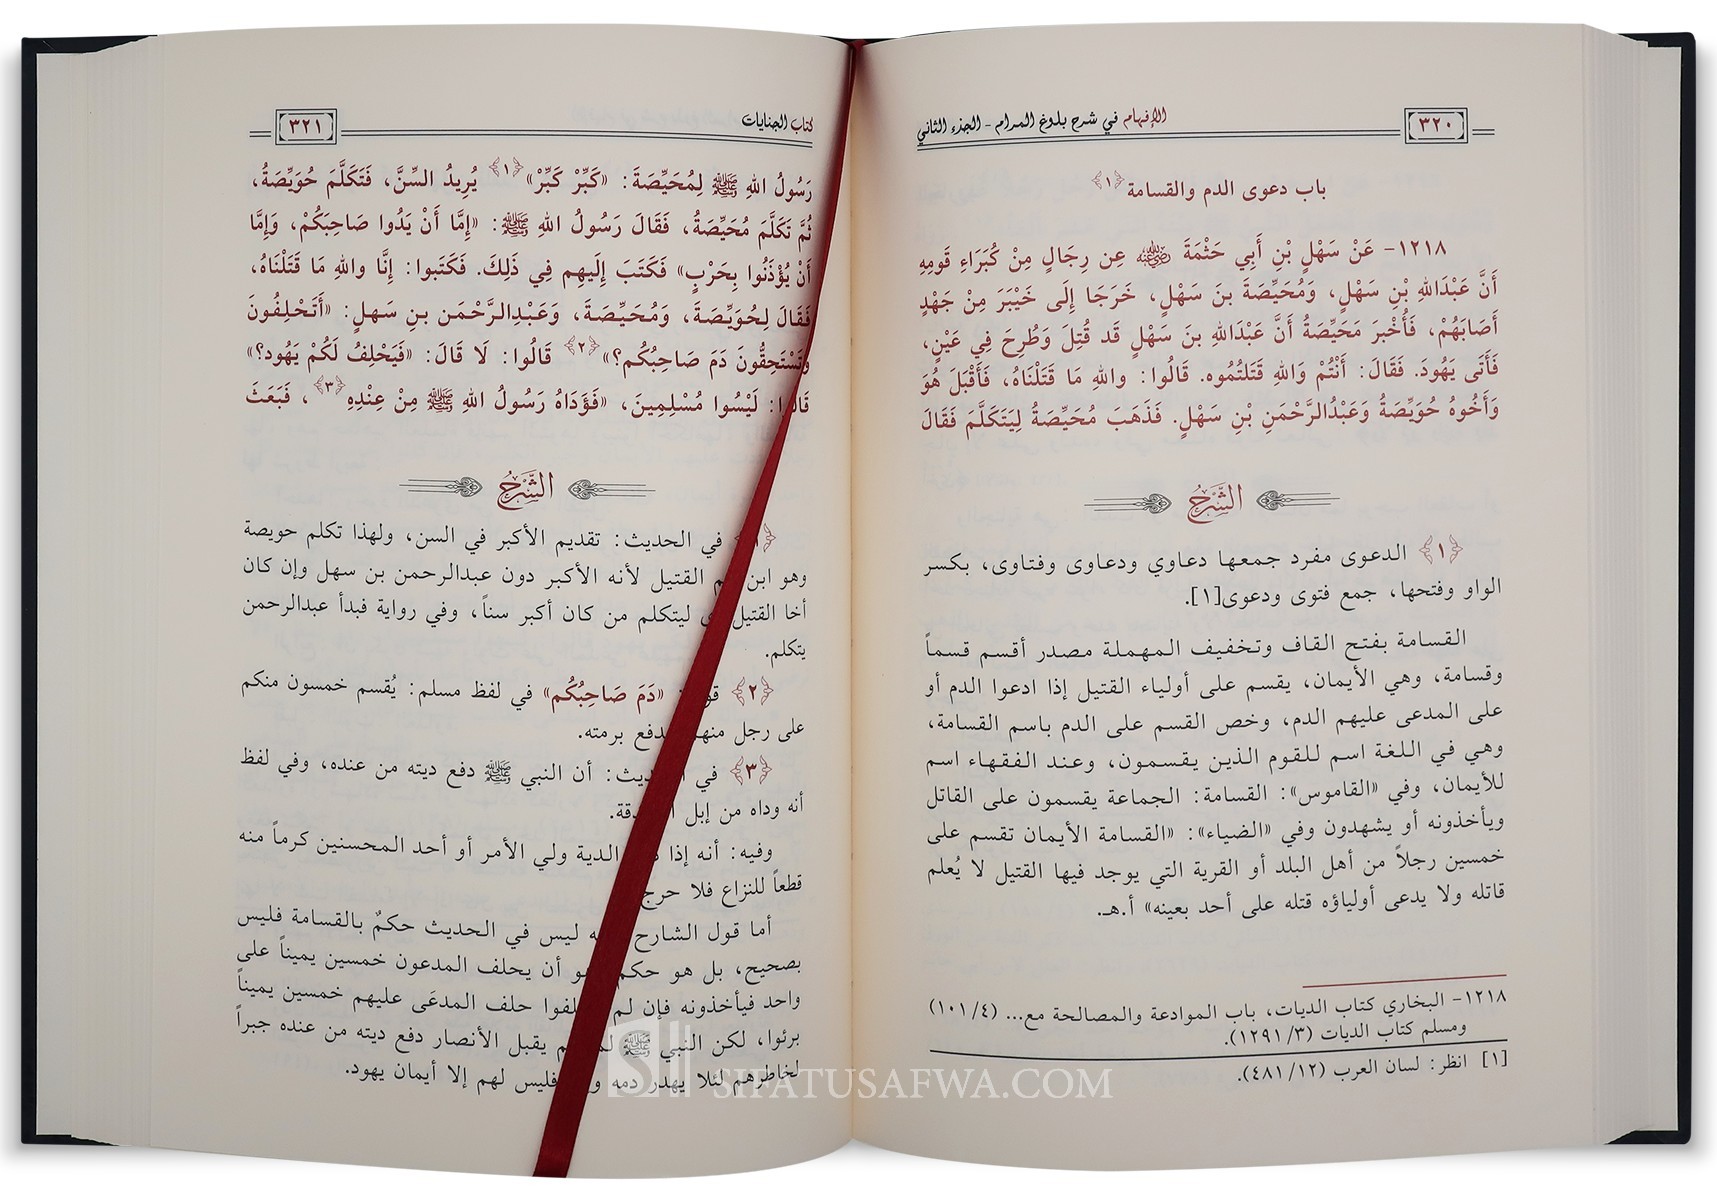 ٣٢٠
الإفهام في شرح بلوغ المرام - الجزء الثاني
باب دعوى الدم والقسامة ﴿١﴾
١٢١٨- عَنْ سَهْلِ بْنِ أَبِي حَثْمَةَ رضي الله عنه عِن رِجَالٍ مِنْ كُبَرَاءِ قَومِهِ
أَنَّ عَبْدَاللهِ بْنِ سَهْلٍ، وَمُحَيِّصَةَ بنَ سَهْلٍ، خَرَجَا إِلَى خَيْبَرَ مِنْ جَهْدٍ
أَصَابَهُمْ، فَأُخْبرَ مَحَيِّصَةُ أَنَّ عَبْدَاللهِ بنَ سَهْلٍ قَد قُتِلَ وَطُرِحَ فِي عَيْنٍ،
فَأَتَى يَهُودَ. فَقَالَ: أَنْتُمْ وَاللهِ قَتَلتُمُوه. قَالُوا: واللهِ مَا قَتَلْنَاهُ، فَأَقْبَلَ هُوَ
وَأَخُوهُ حُوَيِّصَةُ وَعَبْدُالرَّحْمَنِ بْنِ سَهْلٍ. فَذَهَبَ مُحَيِّصَةُ لِيَتَكَلَّمَ فَقَالَ
الشَّرْحُ
﴿١﴾ الدعوى مفرد جمعها دعاوي ودعاوى وفتاوى، بكسر
الواو وفتحها، جمع فتوى ودعوى[١].
القسامة بفتح القاف وتخفيف المهملة مصدر أقسم قسماً
وقسامة، وهي الأيمان، يقسم على أولياء القتيل إذا ادعوا الدم أو
على المدعى عليهم الدم، وخص القسم على الدم باسم القسامة،
وهي في اللغة اسم للقوم الذين يقسمون، وعند الفقهاء اسم
للأيمان، وفي «القاموس»: القسامة: الجماعة يقسمون على القاتل
ويأخذونه أو يشهدون وفي «الضياء»: «القسامة الأيمان تقسم على
خمسين رجلاً من أهل البلد أو القرية التي يوجد فيها القتيل لا يُعلم
قاتله ولا يدعى أولياؤه قتله على أحد بعينه» أ.هـ.
١٢١٨- البخاري كتاب الديات، باب الموادعة والمصالحة مع... (١٠١/٤)
ومسلم كتاب الديات (١٢٩١/٣).
[١] انظر: لسان العرب (٤٨١/١٢).
كتاب الجنايات
٣٢١
رَسُولُ اللهِ ﷺ لِمُحَيِّصَةَ: «كَبِّرْ كَبِّرْ»﴿١﴾ يُرِيدُ السِّنَّ، فَتَكَلَّمَ حُوَيِّصَةُ،
ثُمَّ تَكَلَّمَ مُحَيِّصَةُ، فَقَالَ رَسُولُ اللهِ ﷺ: «إِمَّا أَنْ يَدُوا صَاحِبَكُمْ، وَإِمَّا
أَنْ يُؤْذَنُوا بِحَرْبٍ» فَكَتَبَ إِلَيهِم فِي ذَلِكَ. فَكَتَبوا: إِنَّا واللهِ مَا قَتَلْنَاهُ،
فَقَالَ لِحُوَيِّصَةَ، وَمُحَيِّصَةَ، وَعَبْدِالرَّحْمَن بنِ سَهلٍ: «أَتَحْلِفُونَ
وَتَسْتَحِقُّونَ دَمَ صَاحِبُكُم؟»﴿٢﴾ قَالُوا: لَا قَالَ: «فَيَحْلِفُ لَكُمْ يَهُود؟»
قَالُوا: لَيْسُوا مُسْلِمِينَ، «فَوَدَاهُ رَسُولُ اللهِ ﷺ مِنْ عِنْدِهِ﴿٣﴾، فَبَعَثَ
الشَّرْحُ
في الحديث: تقديم الأكبر في السن، ولهذا تكلم حويصة
وهو ابن عم القتيل لأنه الأكبر دون عبدالرحمن بن سهل وإن كان
أخا القتيل ليتكلم من كان أكبر سناً، وفي رواية فبدأ عبدالرحمن
يتكلم.
﴿٢﴾ قوله: «دَمَ صَاحِبُكُم» في لفظ مسلم: يُقسم خمسون منكم
على رجل منهم فيدفع برمته.
﴿٣﴾ في الحديث: أن النبي ﷺ دفع ديته من عنده، وفي لفظ
أنه وداه من إبل الصدقة.
وفيه: أنه إذا دفع الدية ولي الأمر أو أحد المحسنين كرماً منه
قطعاً للنزاع فلا حرج
أما قول الشارح أنه ليس في الحديث حكمٌ بالقسامة فليس
بصحيح، بل هو حكم وهو أن يحلف المدعون خمسين يميناً على
واحد فيأخذونه فإن لم يحلفوا حلف المدعَى عليهم خمسين يميناً
برئوا، لكن النبي ﷺ لما لم يقبل الأنصار دفع ديته من عنده جبراً
لخاطرهم لئلا يهدر دمه وإلا فليس لهم إلا أيمان يهود.
SIFATUSAFWA.COM